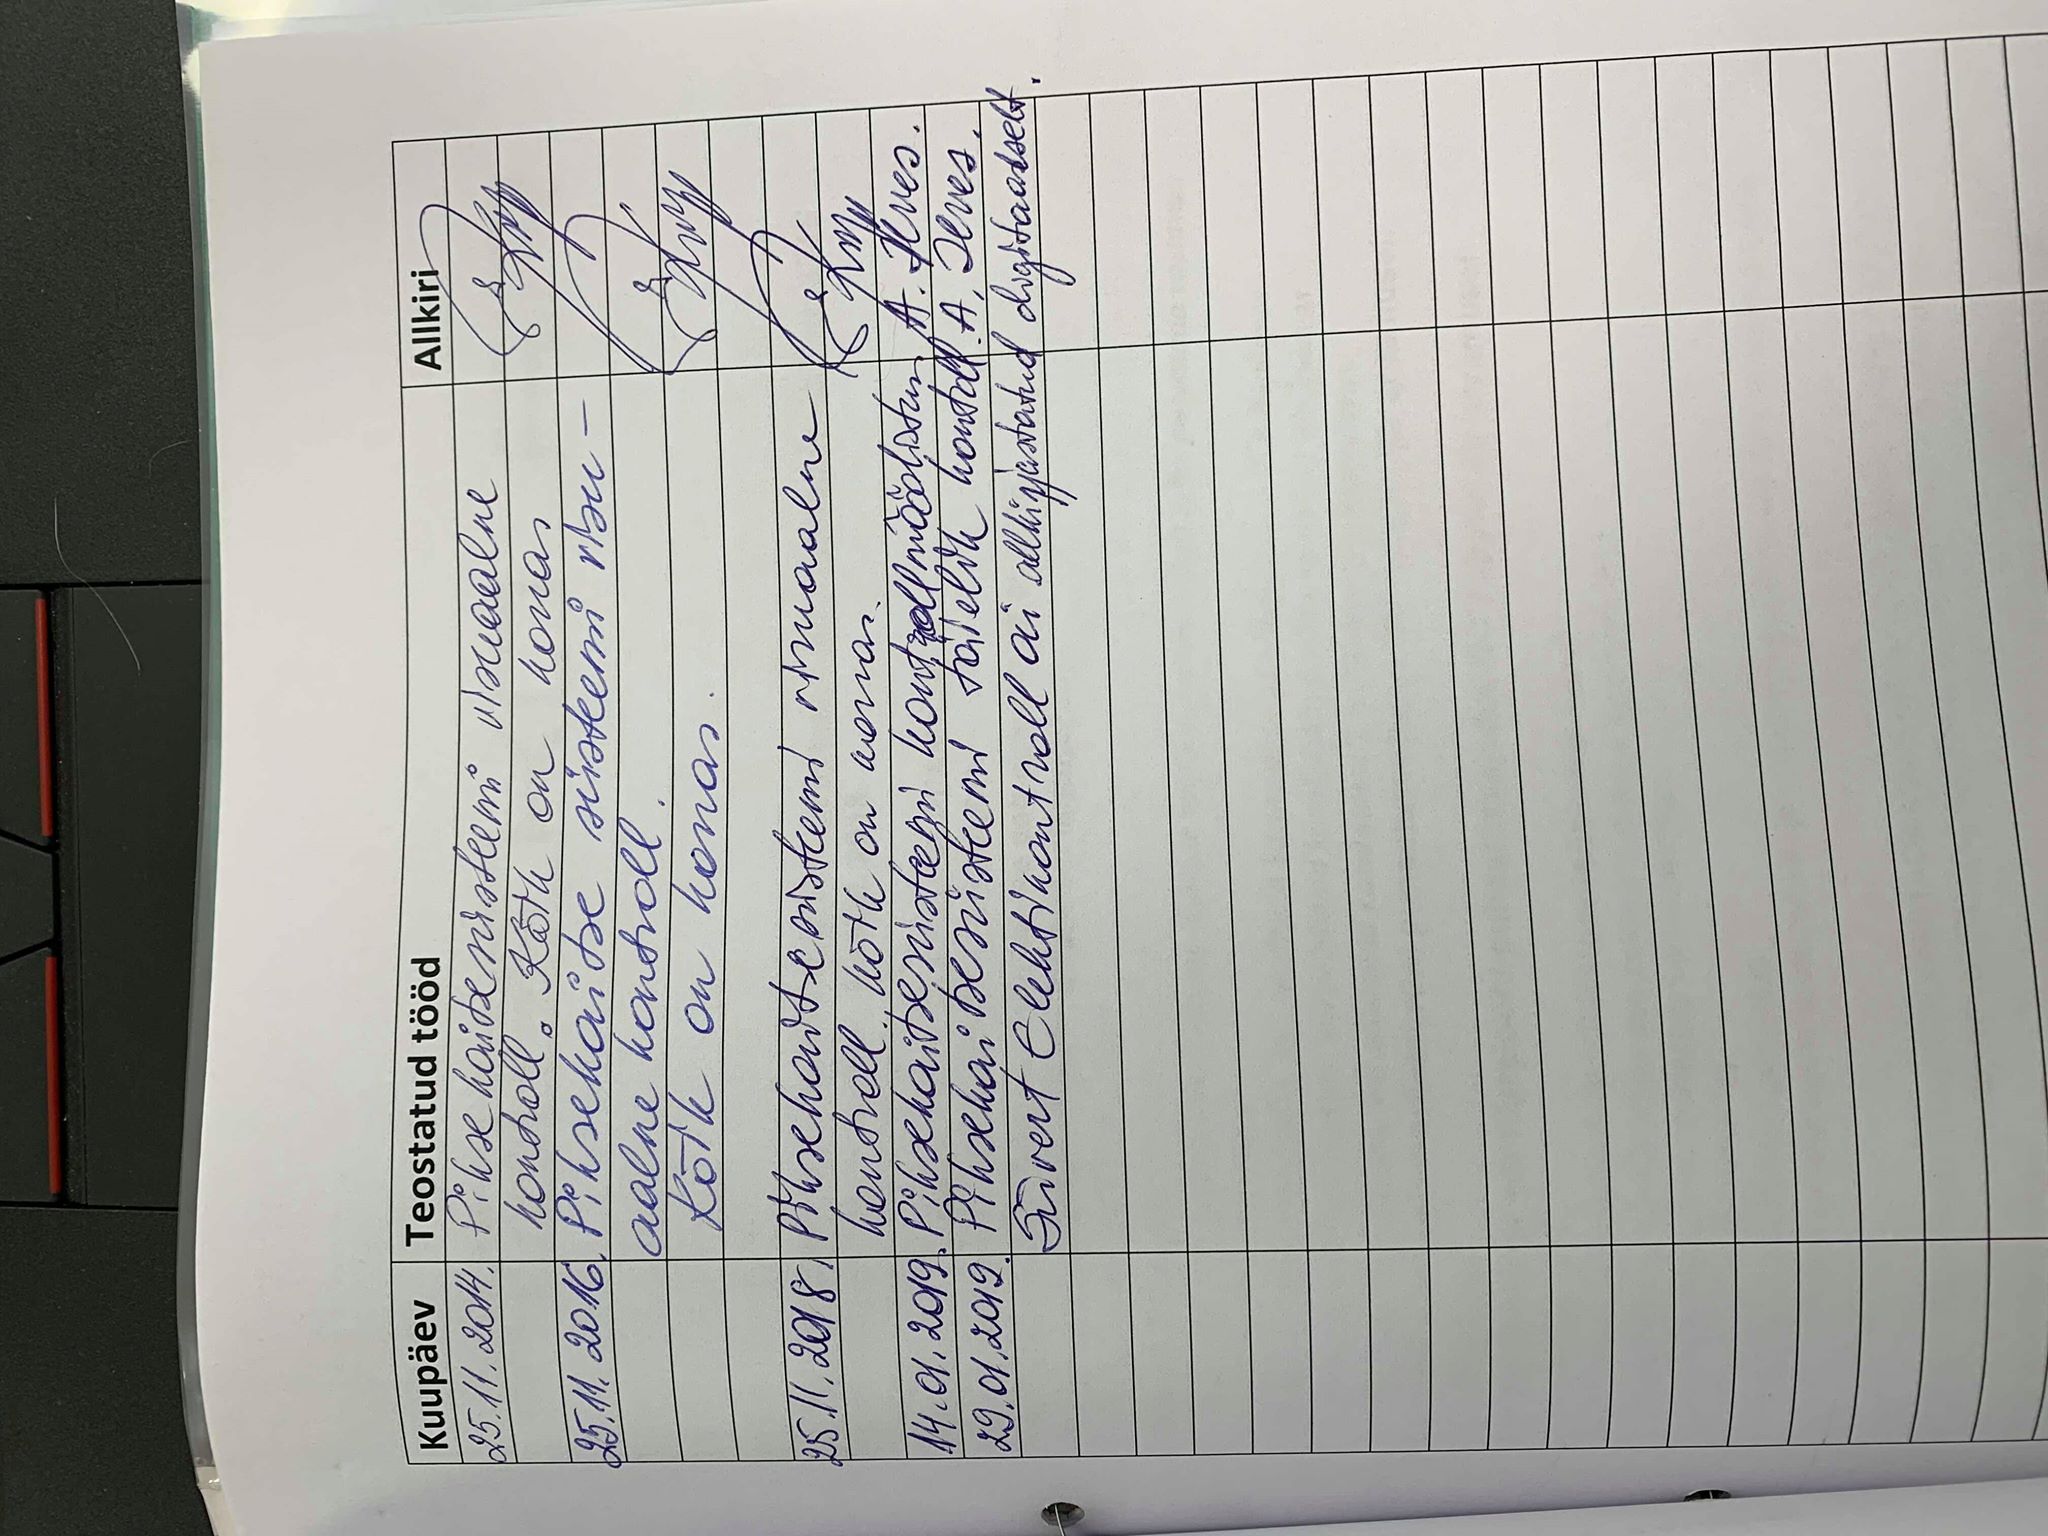 Kuupäev Teostatud tööd Allkiri
25.11.2014. Piksekaitsesüsteemi visuaalne
kontroll. Kõik on korras
25.11.2016. Piksekaitse süsteemi visu-
aalne kontroll.
Kõik on korras.
25.11.2018. Piksekaitsesüsteemi visuaalne
kontroll. Kõik on korras.
14.01.2019. Piksekaitsesüsteemi kontrollmõõdistus A. Ilves.
29.01.2019. Piksekaitsesüsteemi täielik kontroll. A. Ilves.
Siivert Elektrikontroll OÜ allkirjastatud digitaalselt.